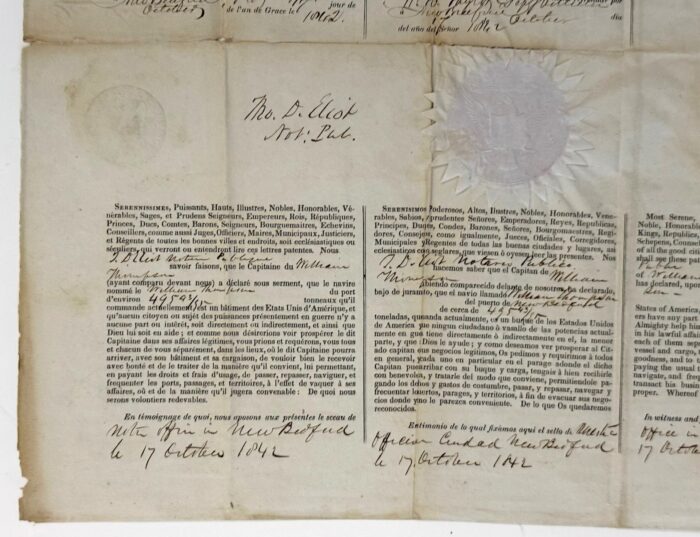 October jour de
de l'an de Grace le 1842.
October dia
del año del Señor 1842
Tho. D. Eliot
Not: Pub.
SERENISSIMES, Puissants, Hauts, Illustres, Nobles, Honorables, Vé-
nérables, Sages, et Prudens Seigneurs, Empereurs, Rois, Républiques,
Princes, Ducs, Comtes, Barons, Seigneurs, Bourguemaitres, Echevins,
Conseillers, comme aussi Juges, Officiers, Maires, Municipaux, Justiciers,
et Régents de toutes bonnes villes et endroits, soit ecclésiastiques ou
séculiers, qui verront ou entendront lire ces lettres patentes. Nous
T. D. Eliot Notaire Publique
savoir faisons, que le Capitaine du William
Thompson
(ayant comparu devant nous) a déclaré sous serment, que le navire
nommé le William Thompson du port
d'environ 495 tonneaux qu'il
commande actuellement est un bâtiment des Etats Unis d'Amérique, et
qu'aucun citoyen ou sujet des puissances présentement en guerre n'y a
aucune part ou intérêt, soit directement ou indirectement, et ainsi que
Dieu lui soit en aide; et comme nous désirerions voir prospérer le dit
Capitaine dans ses affaires légitimes, vous prions et requérons, vous tous
et chacun de vous séparément, dans les lieux, où le dit Capitaine pourra
arriver, avec son bâtiment et sa cargaison, de vouloir bien le recevoir
avec bonté et de le traiter de la manière qu'il convient, lui permettant,
en payant les droits et frais d'usage, de passer, repasser, naviguer, et
fréquenter les ports, passages, et territoires, à l'effet de vaquer à ses
affaires, où et de la manière qu'il jugera convenable: De quoi nous
serons volontiers redevables.
En témoignage de quoi, nous aposons aux présentes le sceau de
notre office in New Bedford
le 17 October 1842
SERENISIMOS Poderosos, Altos, Ilustres, Nobles, Honorables, Vene-
rables, Sabios, y prudentes Señores, Emperadores, Reyes, Republicas,
Principes, Duques, Condes, Barones, Señores, Bourgomaestros, Regi-
dores, Consejos, como igualmente, Jueces, Oficiales, Corregidores,
Municipales y Regentes de todas las buenas ciudades y lugares, asi
eclesiasticos como seglares, que viesen ó oyesen leer las presentes. Nos
T. D. Eliot Notario Publico
hacemos saber que el Capitan de William
Thompson
(habiendo comparecido delante de nosotros) ha declarado,
bajo de juramento, que el navio llamado William Thompson
del puerto de New Bedford
de cerca de 495
toneladas, quando actualmente, es un buque de los Estados Unidos
de America y no ningun ciudadano ó vasallo de las potencias actual-
mente en guerra tiene directamente ó indirectamente en el, la menor
parte, y que ¡Dios le ayude; y como deseamos ver prosperar al Ci-
tado capitan en sus negocios legitimos, Os pedimos y requirimos á todos
en general, y cada uno en particular en el parage adonde el dicho
Capitan puesarribar con su buque y carga, tengais á bien recibirle
con benevolencia, y tratarle del modo que conviene, permitiendole pa-
gando los dichos y gastos de costumbre, pasar, y repasar, navegar y
frecuentar puertos, parages, y territorios, á fin de evacuar sus nego-
cios donde y como le parezca conveniente. De lo que Os quedaremos
reconocidos.
En testimonio de lo qual fixamos aqui el sello de nuestro
Office en Ciudad New Bedford
le 17 October 1842
Most Serene,
Kings, Republics,
Schepens, Counsel
of all the good cities
Public
of William
has declared, upon
States of America
ers have part
Almighty help him
in his lawful affairs
each of them sepa
vessel and cargo,
goodness, and to
paying the usual
navigate, and freq
transact his busi
proper. Whereof
In witness and
office in
17 October